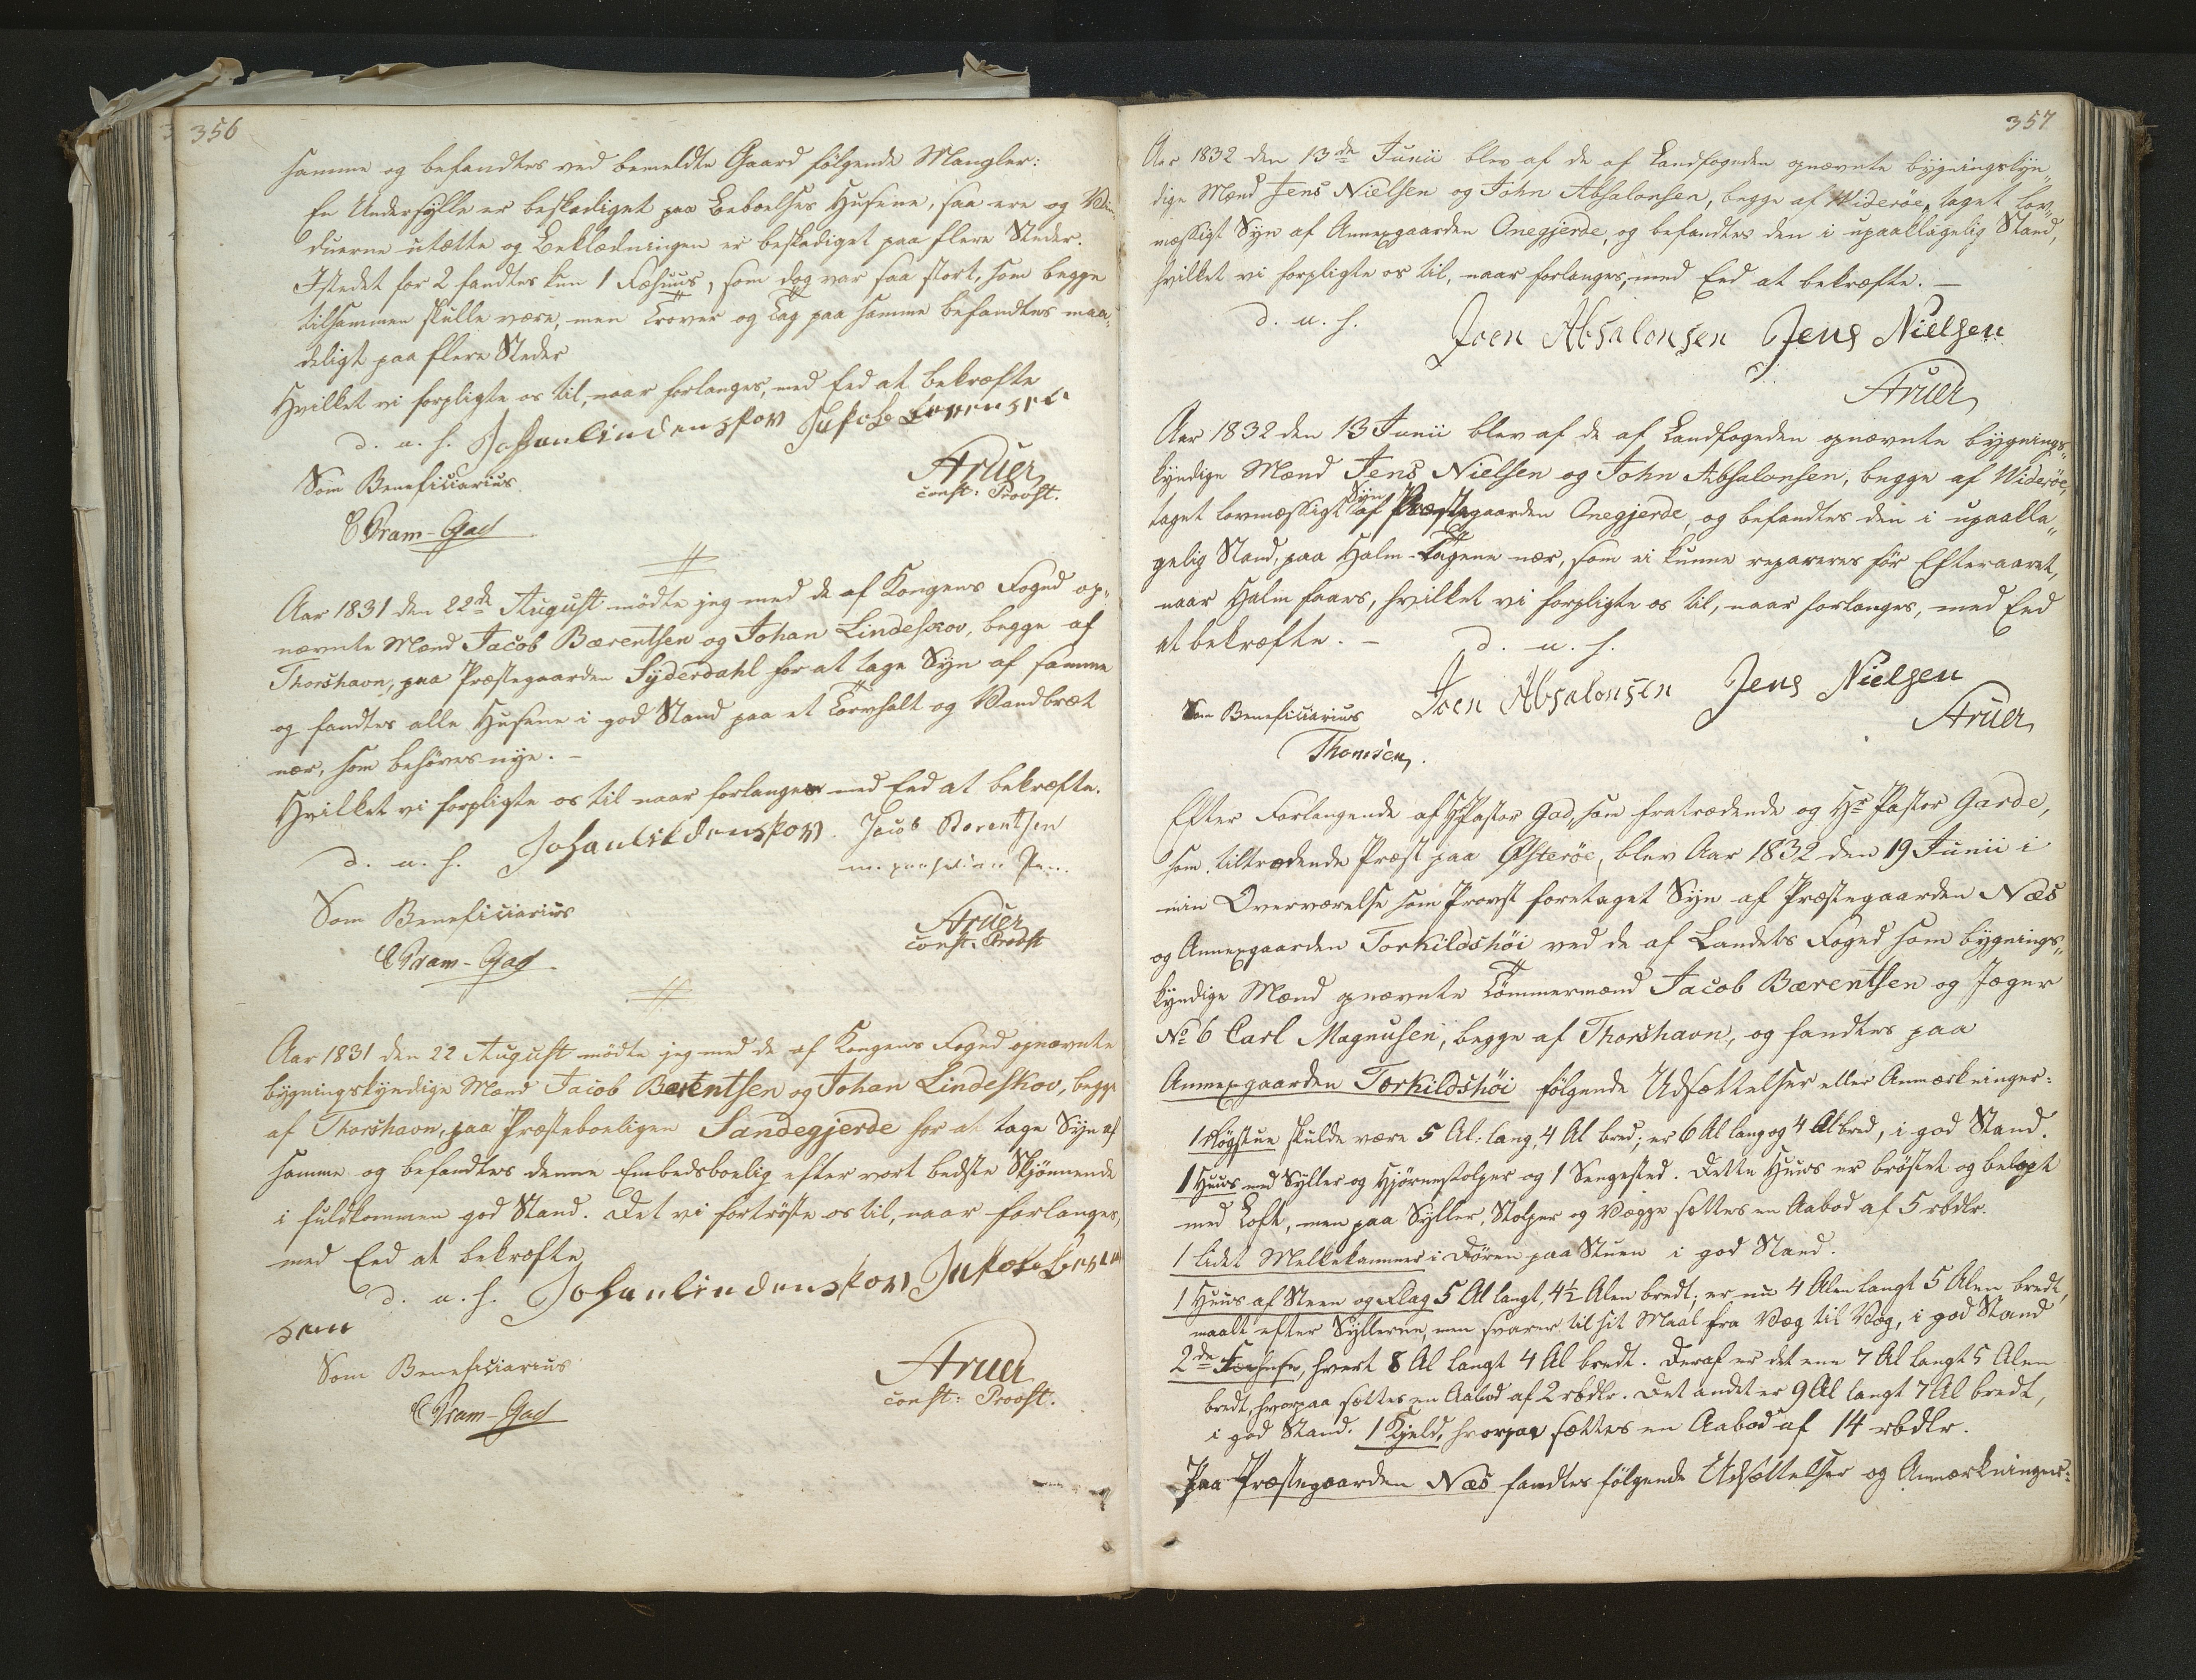 356
samme og befandtes ved bemeldte Gaard følgende Mangler:
En Undersylle er beskadiget paa Beboelses Husene, saa ere og Vin¬
duerne utætte og Beklædningen er beskadiget paa flere Steder.
Istedet for 2 fandtes kun 1 Fæhuus, som dog var saa stort, som begge
tilsammen skulle være, men Trover og Tag paa samme befandtes maa¬
deligt paa flere Steder
Hvilket vi forpligte os til, naar forlanges, med Eed at bekræfte
d. u. s. Johan lindenskov Jakob Berrensen
Som Beneficiarius
Aruer
const: Provst.
C Pram-Gad
Aar 1831 den 22de August mödte jeg med de af Kongens Foged op¬
nævnte Mænd Jacob Bærentsen og Johan Lindeskov, begge af
Thorshavn, paa Præstegaarden Syderdahl for at tage Syn af samme
og fandtes alle Husene i god Stand paa et Torvhalt og Vandbræt
nær, som behöves nye. –
Hvilket vi forpligte os til naar forlanges med Eed at bekræfte.
d. u. s. Johan lindenskov. Jacob Berentsen
m. paaholden Pen.
Som Beneficiarius
Aruer
const. Provst
C Pram-Gad
Aar 1831 den 22 August mödte jeg med de af Kongens Foged opnævnte
bygningskyndige Mænd Jacob Bærentsen og Johan Lindeskov, begge
af Thorshavn, paa Præsteboeligen Sandegjerde for at tage Syn af
samme og befandtes denne Embedsboelig efter vort bedste Skjönnende
i fuldkommen god Stand. Det vi fortröste os til, naar forlanges,
med Eed at bekræfte
d. u. s. Johan lindenskov Jakob Beren
sen
Som Beneficiarius
Aruer
const: Provst.
C Pram-Gad
357
Aar 1832 den 13de Junii blev af de af Landfogeden opnævnte bygningskyn¬
dige Mænd Jens Nielsen og John Absalonsen, begge af Wideröe, taget lov¬
mæssigt Syn af Annexgaarden Onegjerde, og befandtes den i upaaklagelig Stand,
hvilket vi forpligte os til, naar forlanges, med Eed at bekræfte. –
d. u. s.
Joen Absalonsen Jens Nielsen
Aruer
Aar 1832 den 13 Junii blev af de af Landfogeden opnævnte bygnings¬
kyndige Mænd Jens Nielsen og John Absalonsen, begge af Wideröe,
taget lovmæssigt Syn af Præstegaarden Onegjerde, og befandtes den i upaakla¬
gelig Stand, paa Halm-Tagene nær, som ei kunne repareres för Efteraaret,
naar Halm faaes, hvilket vi forpligte os til, naar forlanges, med Eed
at bekræfte. – d. u. s.
Joen Absalonsen Jens Nielsen
Som Beneficiarius
Aruer
Thomsen.
Efter Forlangende af H Pastor Gad, som fratrædende og Hr Pastor Garde,
som tiltrædende Præst paa Østeröe, blev Aar 1832 den 19 Junii i
min Overværelse som Provst foretaget Syn af Præstegaarden Næs
og Annexgaarden Torkildshöi ved de af Landets Foged som bygnings¬
kyndige Mænd opnævnte Tömmermænd Jacob Bærentsen og Jæger
No 6 Carl Magnusen, begge af Thorshavn, og fandtes paa
Annexgaarden Torkildshöi følgende Udsættelser eller Anmærkninger:
1 Rögstue skulde være 5 Al: lang, 4 Al bred; er 6 Al lang og 4 Al bred, i god Stand.
1 Huus med Syller og Hjörnestolper og 1 Sengested. Dette Huus er bröstet og belagt
med Loft, men paa Syller, Stolper og Vægge sættes en Aabod af 5 rbdlr.
1 lidet Melkekammer i Dören paa Stuen i god Stand.
1 Huus af Steen og Flag 5 Al langt, 4½ Alen bredt; er nu 4 Alen langt 5 Alen bredt,
maalt efter Syllerne, men svarer til sit Maal fra Væg til Væg, i god Stand
2de Fæhuse, hvert 8 Al langt 4 Al bredt. Deraf er det ene 7 Al langt 5 Alen
bredt, hvorpaa sættes en Aabod af 2 rbdlr. Det andet er 9 Al langt 7 Al bredt,
i god Stand. 1 Kjeld, hvorpaa sættes en Aabod af 14 rbdlr.
Paa Præstegaarden Næs fandtes følgende Udsættelser og Anmærkninger: